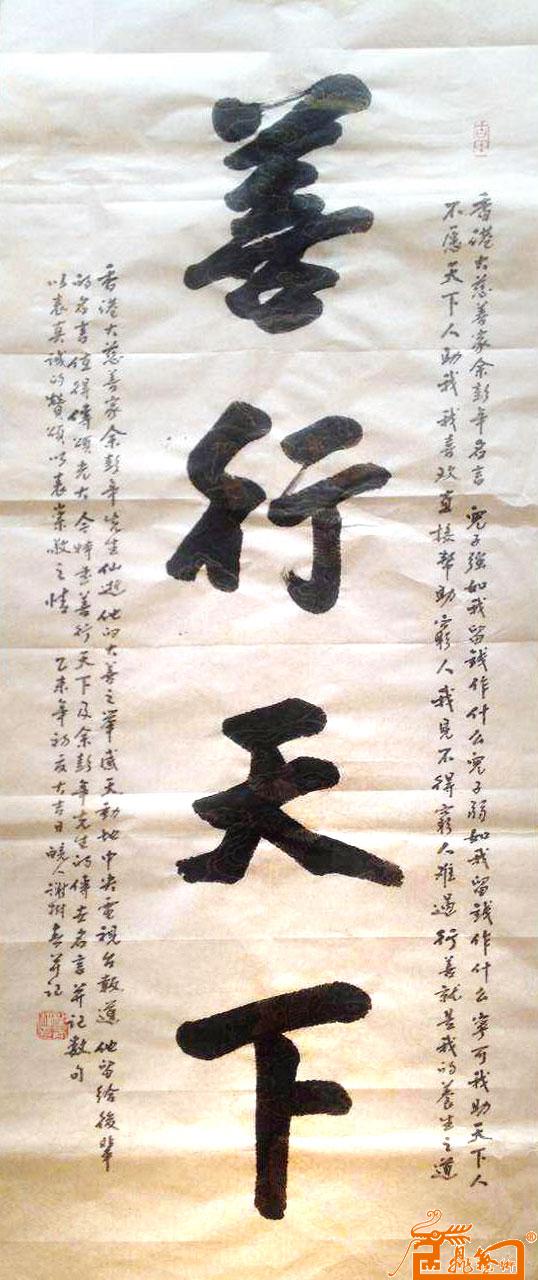 善行天下
香港大慈善家余彭年名言 兒子強如我留錢作什么兒子弱如我留錢作什么寧可我助天下人
不愿天下人助我我喜欢直接帮助窮人我見不得窮人难過 行善就是我的養生之道
香港大慈善家余彭年先生仙逝他的大善之举感天動地中央電視台報道 他留给後輩
的名言值得傳頌老大今特書善行天下及余彭年先生的傳世名言并记數句
以表真诚的赞颂以表崇敬之情 乙未年初夏大吉日 皖人谢樹春并记